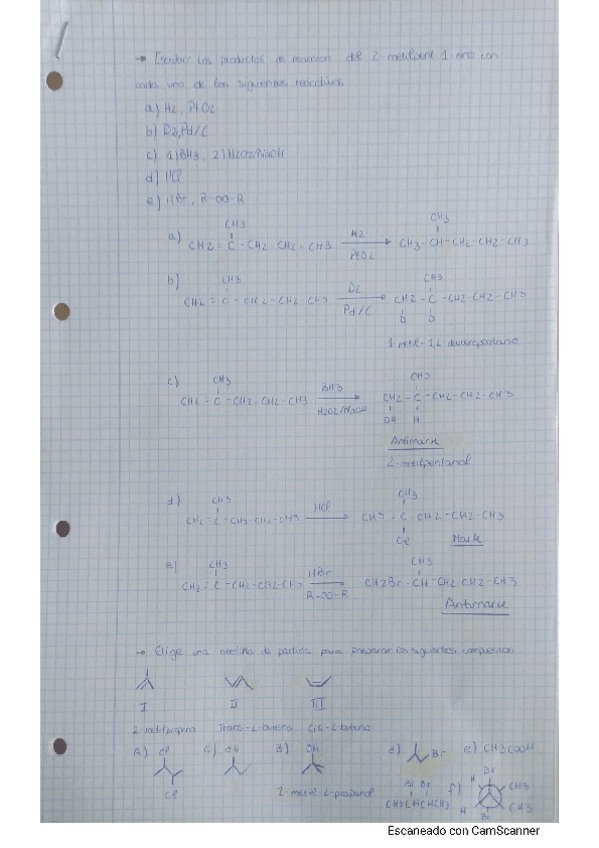 → Escribir los productos de reacción del 2 metilpent 1-eno con
cada uno de los siguientes reactivos
a) H2, PtO2
b) D2, Pd/C
c) 1) BH3, 2) H2O2/NaOH
d) HCl
e) HBr, R-OO-R
a) CH2 = C - CH2-CH2-CH3 CH3 H2 PtO2 CH3-CH-CH2-CH2-CH3 CH3
b) CH2 = C - CH2-CH2-CH3 CH3 D2 Pd/C CH2 - C - CH2-CH2-CH3 CH3 D D
c) CH2 = C - CH2-CH2-CH3 CH3 BH3 H2O2/NaOH CH2 - C - CH2-CH2-CH3 CH3 OH H
Antimark
2-metilpentanol
d) CH2 = C - CH2-CH2-CH3 CH3 HCl CH3 - C - CH2-CH2-CH3 CH3 Cl
Mark
e) CH2 = C - CH2-CH2-CH3 CH3 HBr R-OO-R CH2Br - CH-CH2-CH2-CH3 CH3
Antimark
→ Elige una de partida para preparar los siguientes compuestos
I II III
2-metilpropeno Trans-2-buteno Cis-2-buteno
A) Cl Cl C) OH B) OH d) Br e) CH3COOH
2-metil-2-propanol Br Br CH3CHCHCH3 f) H Br CH3 H CH3 Br
Escaneado con CamScanner